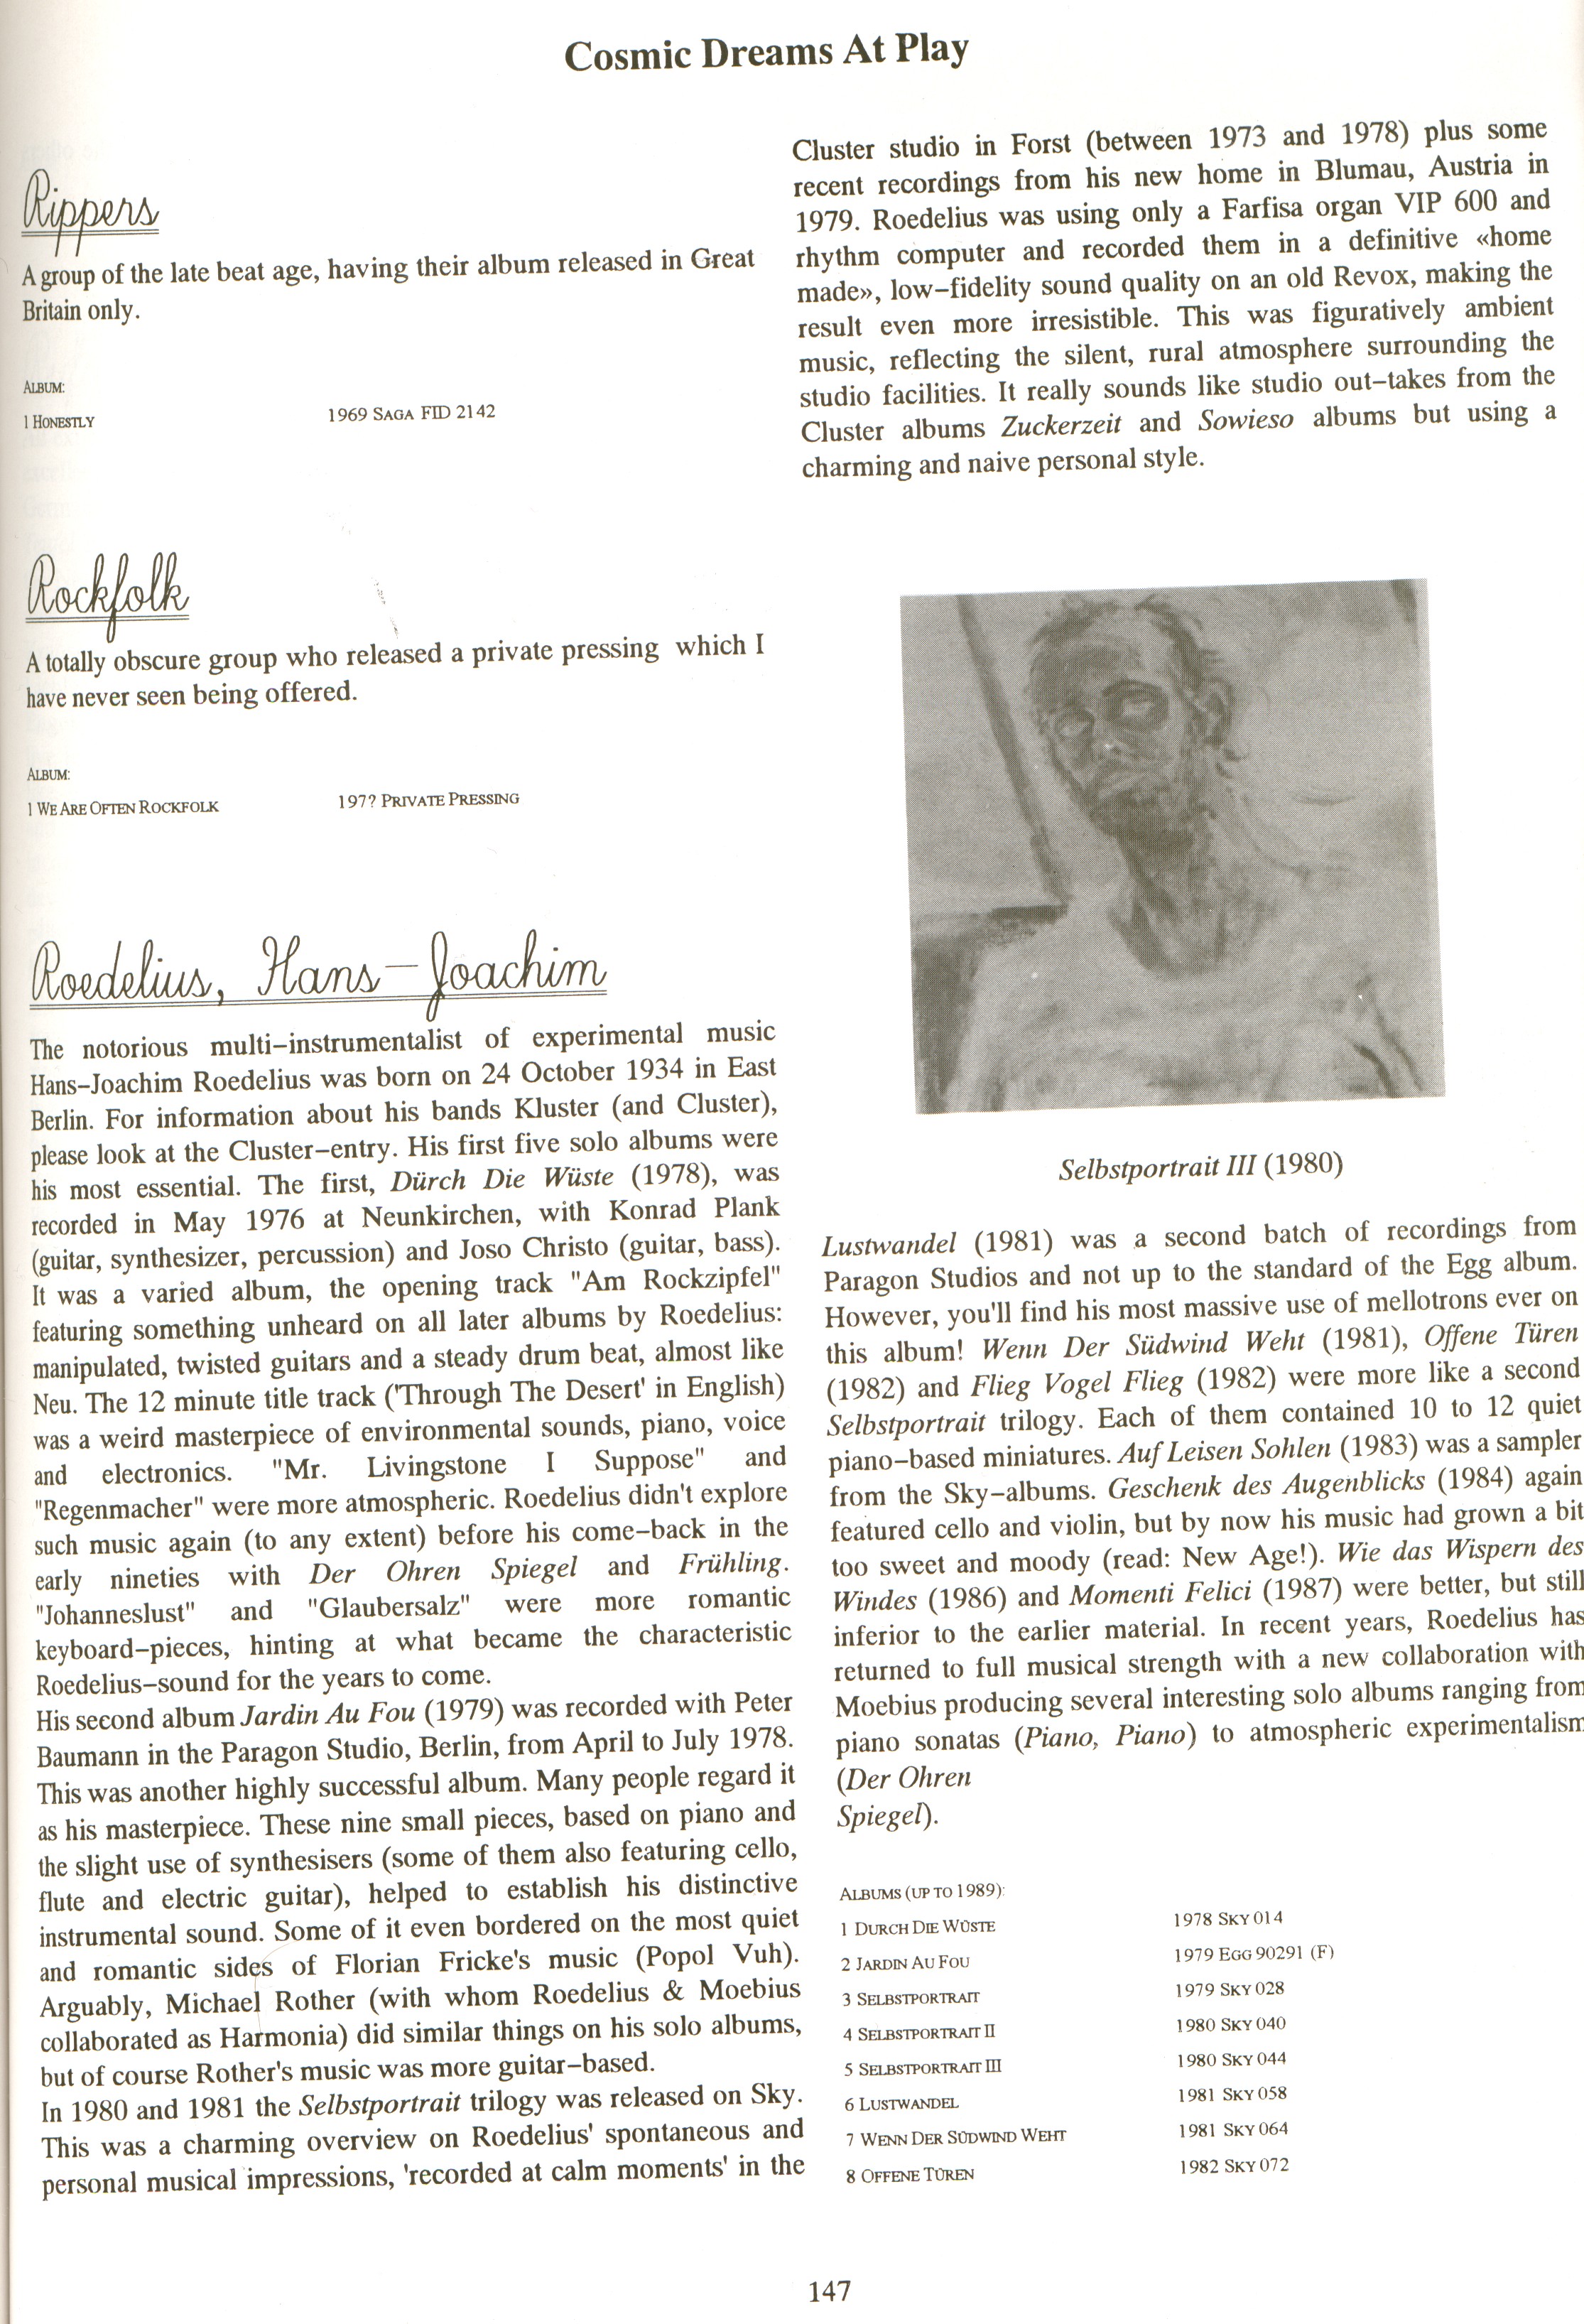 Cosmic Dreams At Play
Rippers
A group of the late beat age, having their album released in Great
Britain only.
ALBUM:
1 HONESTLY 1969 SAGA FID 2142
Rockfolk
A totally obscure group who released a private pressing which I
have never seen being offered.
ALBUM:
1 WE ARE OFTEN ROCKFOLK 197? PRIVATE PRESSING
Roedelius, Hans-Joachim
The notorious multi-instrumentalist of experimental music
Hans-Joachim Roedelius was born on 24 October 1934 in East
Berlin. For information about his bands Kluster (and Cluster),
please look at the Cluster-entry. His first five solo albums were
his most essential. The first, Dürch Die Wüste (1978), was
recorded in May 1976 at Neunkirchen, with Konrad Plank
(guitar, synthesizer, percussion) and Joso Christo (guitar, bass).
It was a varied album, the opening track "Am Rockzipfel"
featuring something unheard on all later albums by Roedelius:
manipulated, twisted guitars and a steady drum beat, almost like
Neu. The 12 minute title track ('Through The Desert' in English)
was a weird masterpiece of environmental sounds, piano, voice
and electronics. "Mr. Livingstone I Suppose" and
"Regenmacher" were more atmospheric. Roedelius didn't explore
such music again (to any extent) before his come-back in the
early nineties with Der Ohren Spiegel and Frühling.
"Johanneslust" and "Glaubersalz" were more romantic
keyboard-pieces, hinting at what became the characteristic
Roedelius-sound for the years to come.
His second album Jardin Au Fou (1979) was recorded with Peter
Baumann in the Paragon Studio, Berlin, from April to July 1978.
This was another highly successful album. Many people regard it
as his masterpiece. These nine small pieces, based on piano and
the slight use of synthesisers (some of them also featuring cello,
flute and electric guitar), helped to establish his distinctive
instrumental sound. Some of it even bordered on the most quiet
and romantic sides of Florian Fricke's music (Popol Vuh).
Arguably, Michael Rother (with whom Roedelius & Moebius
collaborated as Harmonia) did similar things on his solo albums,
but of course Rother's music was more guitar-based.
In 1980 and 1981 the Selbstportrait trilogy was released on Sky.
This was a charming overview on Roedelius' spontaneous and
personal musical impressions, 'recorded at calm moments' in the
Cluster studio in Forst (between 1973 and 1978) plus some
recent recordings from his new home in Blumau, Austria in
1979. Roedelius was using only a Farfisa organ VIP 600 and
rhythm computer and recorded them in a definitive «home
made», low-fidelity sound quality on an old Revox, making the
result even more irresistible. This was figuratively ambient
music, reflecting the silent, rural atmosphere surrounding the
studio facilities. It really sounds like studio out-takes from the
Cluster albums Zuckerzeit and Sowieso albums but using a
charming and naive personal style.
Selbstportrait III (1980)
Lustwandel (1981) was a second batch of recordings from
Paragon Studios and not up to the standard of the Egg album.
However, you'll find his most massive use of mellotrons ever on
this album! Wenn Der Südwind Weht (1981), Offene Türen
(1982) and Flieg Vogel Flieg (1982) were more like a second
Selbstportrait trilogy. Each of them contained 10 to 12 quiet
piano-based miniatures. Auf Leisen Sohlen (1983) was a sampler
from the Sky-albums. Geschenk des Augenblicks (1984) again
featured cello and violin, but by now his music had grown a bit
too sweet and moody (read: New Age!). Wie das Wispern des
Windes (1986) and Momenti Felici (1987) were better, but still
inferior to the earlier material. In recent years, Roedelius has
returned to full musical strength with a new collaboration with
Moebius producing several interesting solo albums ranging from
piano sonatas (Piano, Piano) to atmospheric experimentalism
(Der Ohren
Spiegel).
ALBUMS (UP TO 1989):
1 DURCH DIE WÜSTE 1978 SKY 014
2 JARDIN AU FOU 1979 EGG 90291 (F)
3 SELBSTPORTRAIT 1979 SKY 028
4 SELBSTPORTRAIT II 1980 SKY 040
5 SELBSTPORTRAIT III 1980 SKY 044
6 LUSTWANDEL 1981 SKY 058
7 WENN DER SÜDWIND WEHT 1981 SKY 064
8 OFFENE TÜREN 1982 SKY 072
147